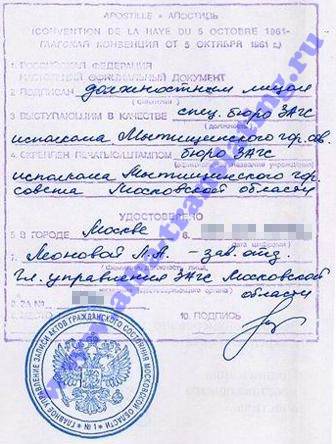 APOSTILLE • АПОСТИЛЬ
(CONVENTION DE LA HAYE DU 5 OCTOBRE 1961-
ГААГСКАЯ КОНВЕНЦИЯ ОТ 5 ОКТЯБРЯ 1961 г.)
1. РОССИЙСКАЯ ФЕДЕРАЦИЯ
НАСТОЯЩИЙ ОФИЦИАЛЬНЫЙ ДОКУМЕНТ
2. ПОДПИСАН должностным лицом
(фамилия)
3. ВЫСТУПАЮЩИМ В КАЧЕСТВЕ спец. бюро ЗАГС
(должность)
исполкома Мытищинского гор. сов.
4. СКРЕПЛЕН ПЕЧАТЬЮ/ШТАМПОМ бюро ЗАГС
исполкома Мытищинского гор.
совета Московской области
УДОСТОВЕРЕНО
5. В ГОРОДЕ Москве 6.
7. Леоновой Л.А. - зав. отд.
гл. управления ЗАГС Московской
области
8. ЗА №
10. ПОДПИСЬ
ГЛАВНОЕ УПРАВЛЕНИЕ ЗАПИСИ АКТОВ ГРАЖДАНСКОГО СОСТОЯНИЯ МОСКОВСКОЙ ОБЛАСТИ
* №1 *